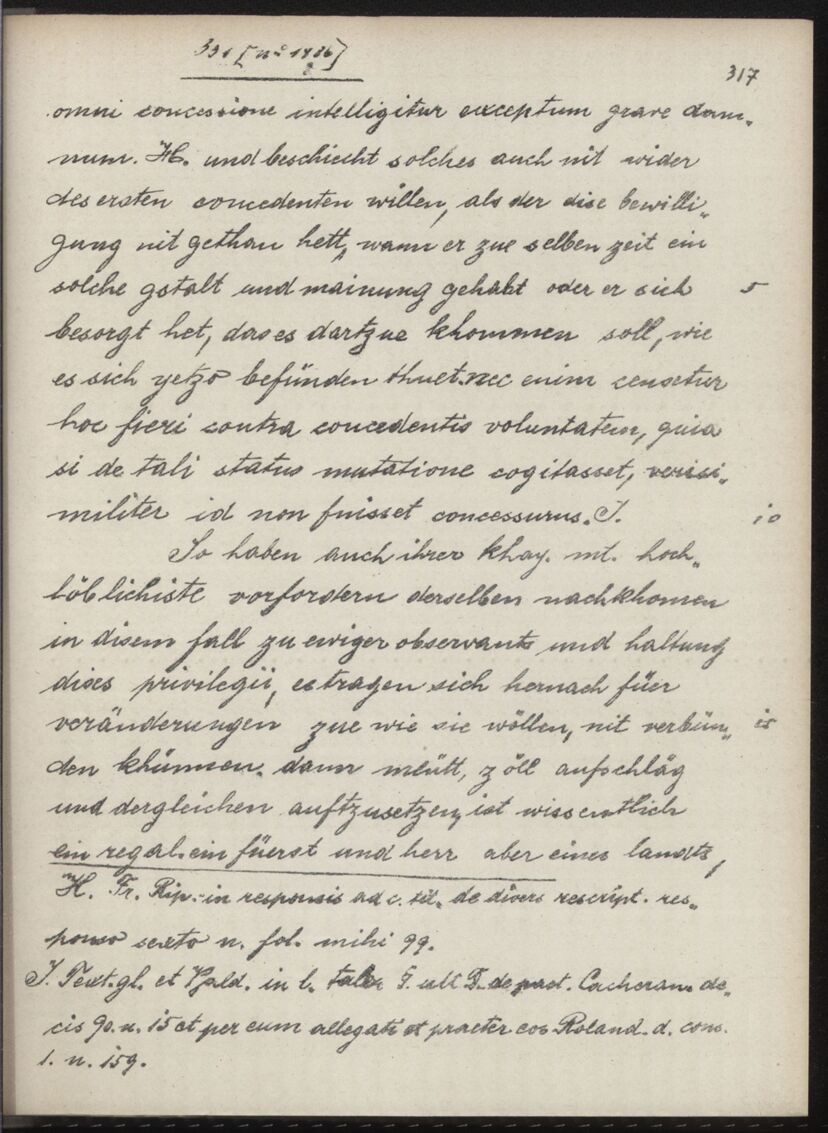 331 [nº 1486]
317
omni concessione intelligitur exceptum grave dam„
num. H. und beschiecht solches auch nit wider
des ersten concedenten willen, als der dise bewilli„
gung nit gethan hett, wann er zue selben zeit ein
solche gstalt und mainung gehabt oder er sich 5
besorgt het, das es dartzue khommen soll, wie
es sich yetzo befünden thuet. nec enim censetur
hoc fieri contra concedentis voluntatem, quia
si de tali status mutatione cogitasset, verisi„
militer id non fuisset concessurus. J. 10
So haben auch ihrer khay. mt. hoch„
löblichiste vorfordern derselben nachkhomen
in disem fall zu ewiger observants und haltung
dises privilegii, es tragen sich hernach füer
veränderungen zue wie sie wöllen, nit verbün„ 15
den khünnen. dann meütt, zöll aufschläg
und dergleichen auftzusetzen, ist wissentlich
ein regal. ein füerst und herr aber eines landts,
H. Fr. Rip. in responsis ad c. tit. de divers rescript. res„
ponso sexto n. fol. mihi 99.
J. Text. gl. et Bald. in l. tale § ult D. de pact. Cacheran. de„
cis 90. n. 15 et per eum allegati et praeter eos Roland. d. cons.
1. n. 159.